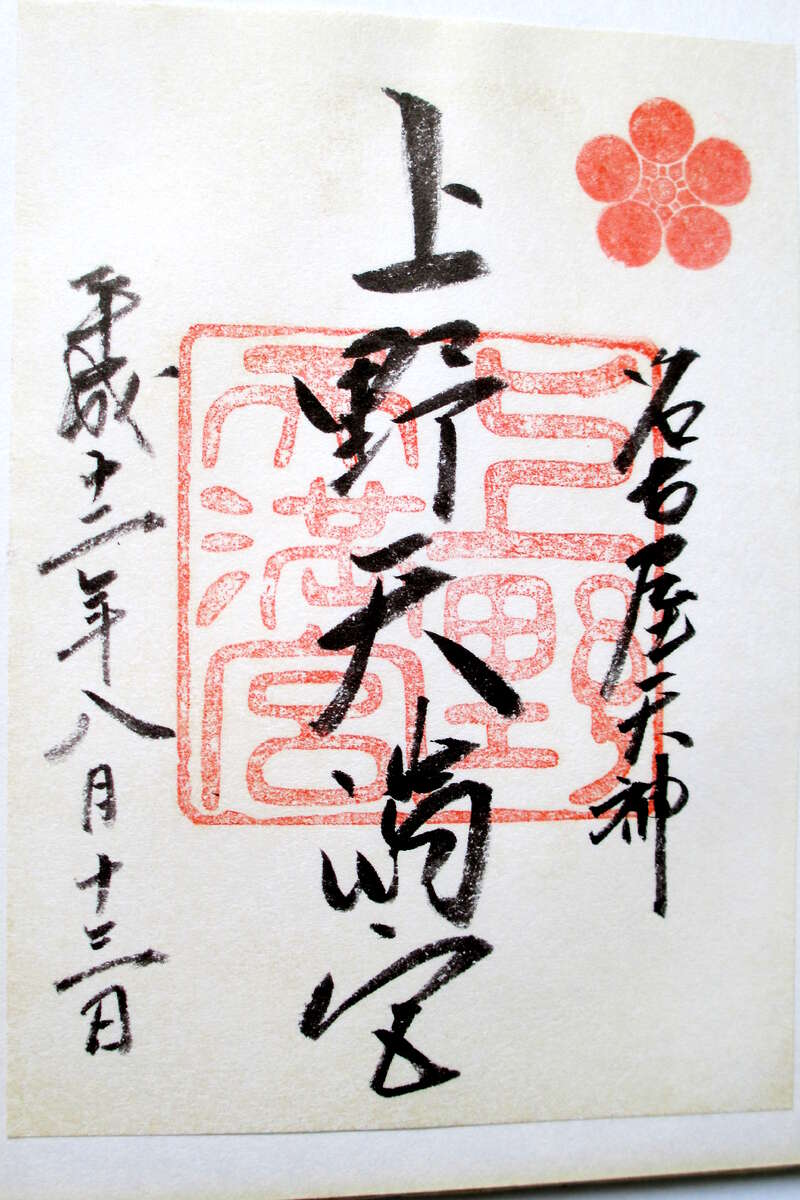 名古屋天神
上野天満宮
平成十二年八月十三日
上野
天満宮